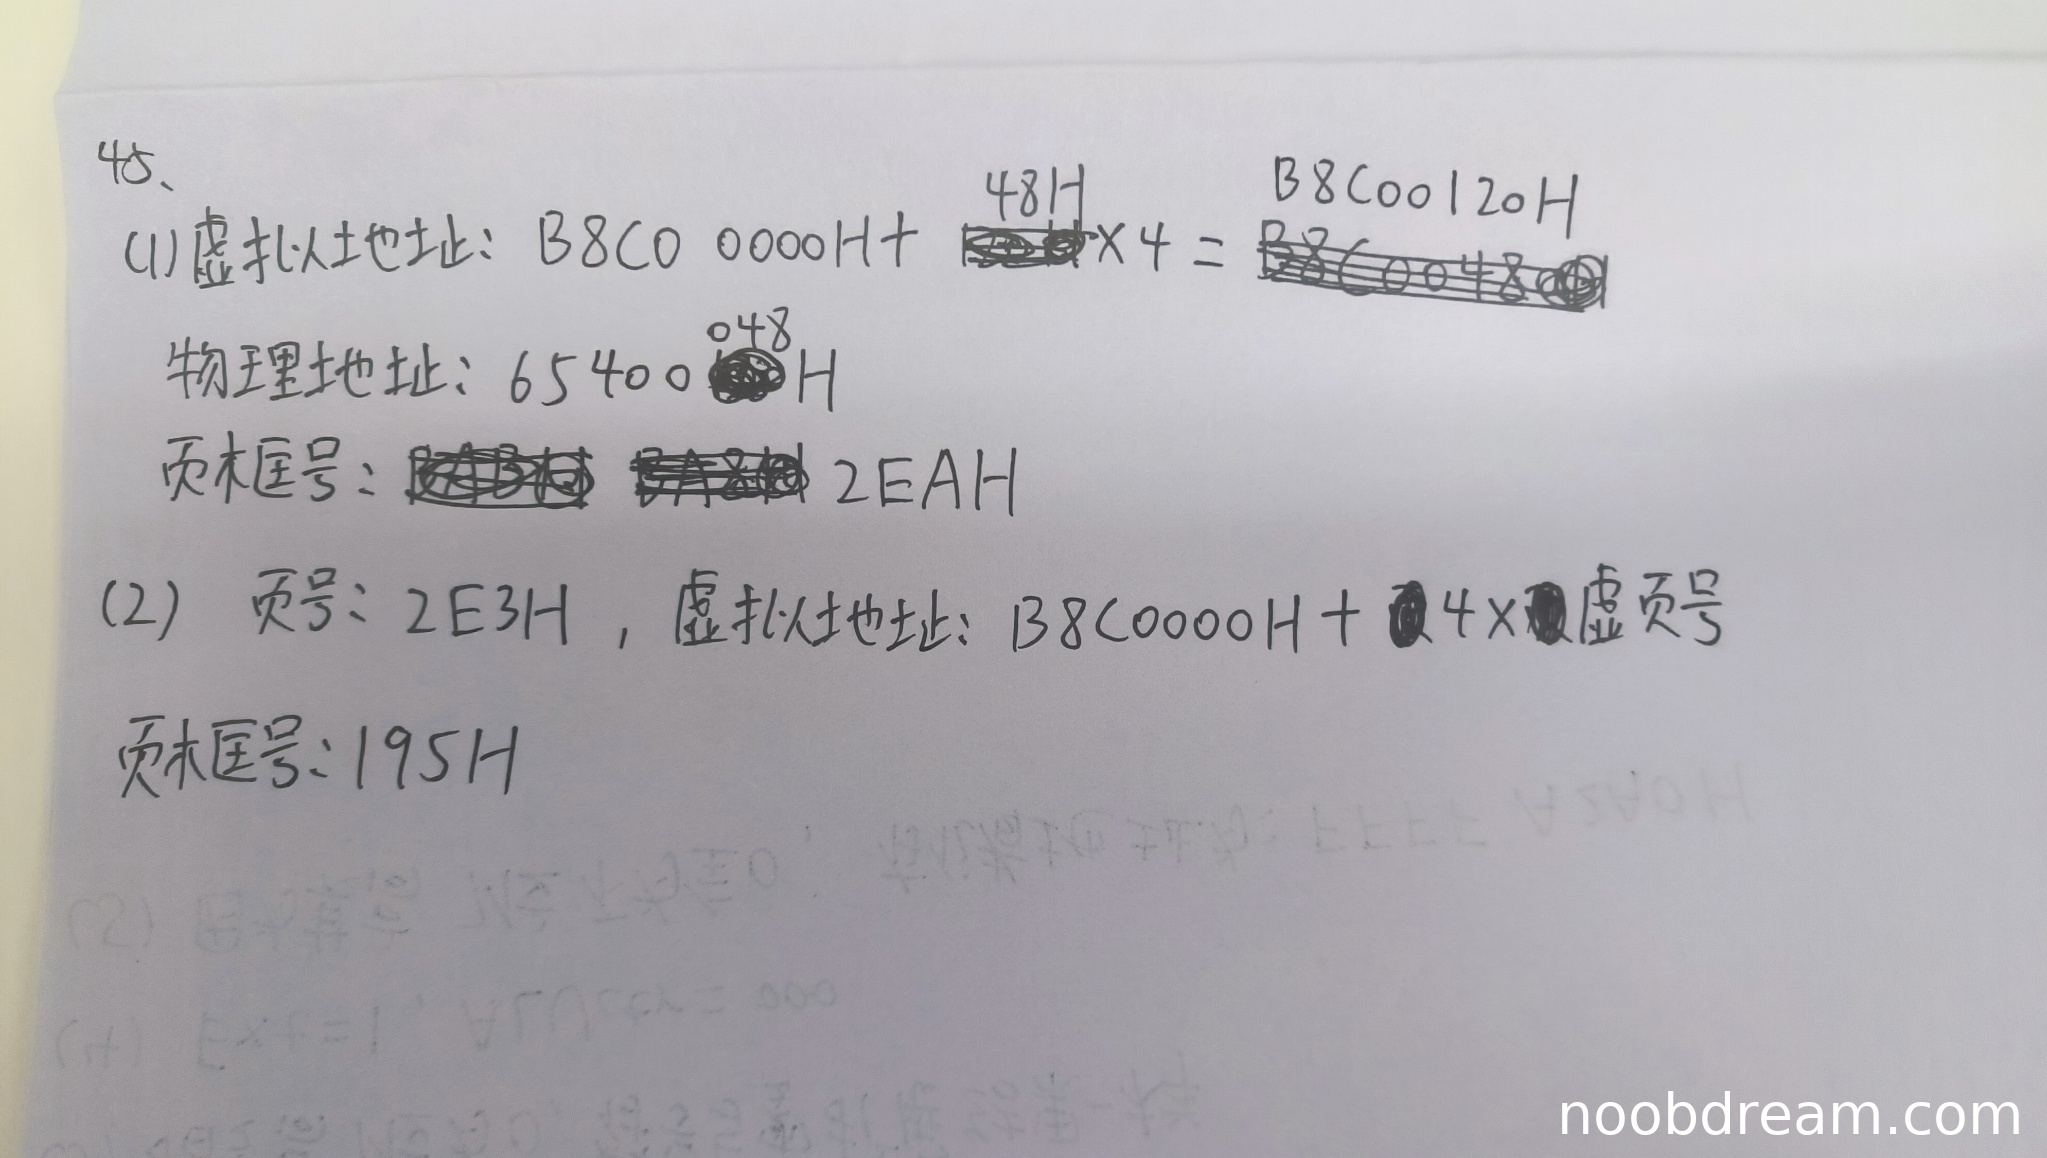 45、
(1) 虚拟地址: B8C0 0000H + 48H × 4 = B8C00120H
物理地址: 65400048H
页框号: 2EAH
(2) 页号: 2E3H , 虚拟地址: B8C0000H + 4 × 虚页号
页框号: 195H
noobdream.com